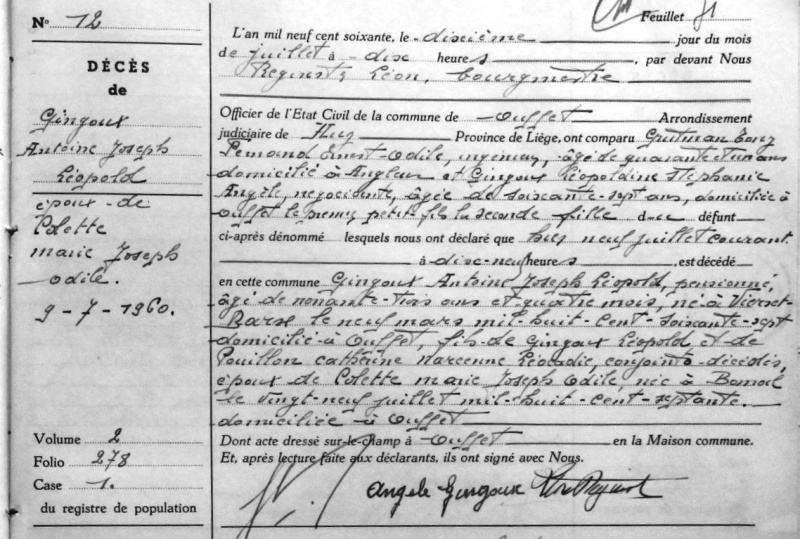 Feuillet 31
L'an mil neuf cent soixante, le dixième jour du mois
de juillet à dix heures, par devant Nous
Léon, bourgmestre
Officier de l'Etat Civil de la commune de Ouffet Arrondissement
judiciaire de Huy Province de Liège, ont comparu
Ernest Odile, âgé de quarante et un ans
domicilié à Angleur et Gingoux Léopoldine Stéphanie
Angèle, négociante, âgée de soixante-sept ans, domiciliée à
Ouffet le premier petit-fils la seconde fille du défunt
ci-après dénommé lesquels nous ont déclaré que hier neuf juillet courant
à dix-neuf heures, est décédé
en cette commune Gingoux Antoine Joseph Léopold, pensionné,
âgé de nonante-trois ans et quatre mois, né à Vierset-
Barse le neuf mars mil-huit-cent-soixante-sept
domicilié à Ouffet, fils de Gingoux Léopold et de
Pouillon Catherine Léocadie, conjoints décédés,
époux de Colette Marie Joseph Odile, née à Bomal
le vingt-neuf juillet mil-huit-cent-septante.
domiciliée à Ouffet
Dont acte dressé sur-le-champ à Ouffet en la Maison commune.
Et, après lecture faite aux déclarants, ils ont signé avec Nous.
Angèle Gingoux
No 12
DÉCÈS
de
Gingoux
Antoine Joseph
Léopold
époux de
Colette
Marie Joseph
Odile.
9-7-1960.
Volume 2
Folio 278
Case 1.
du registre de population